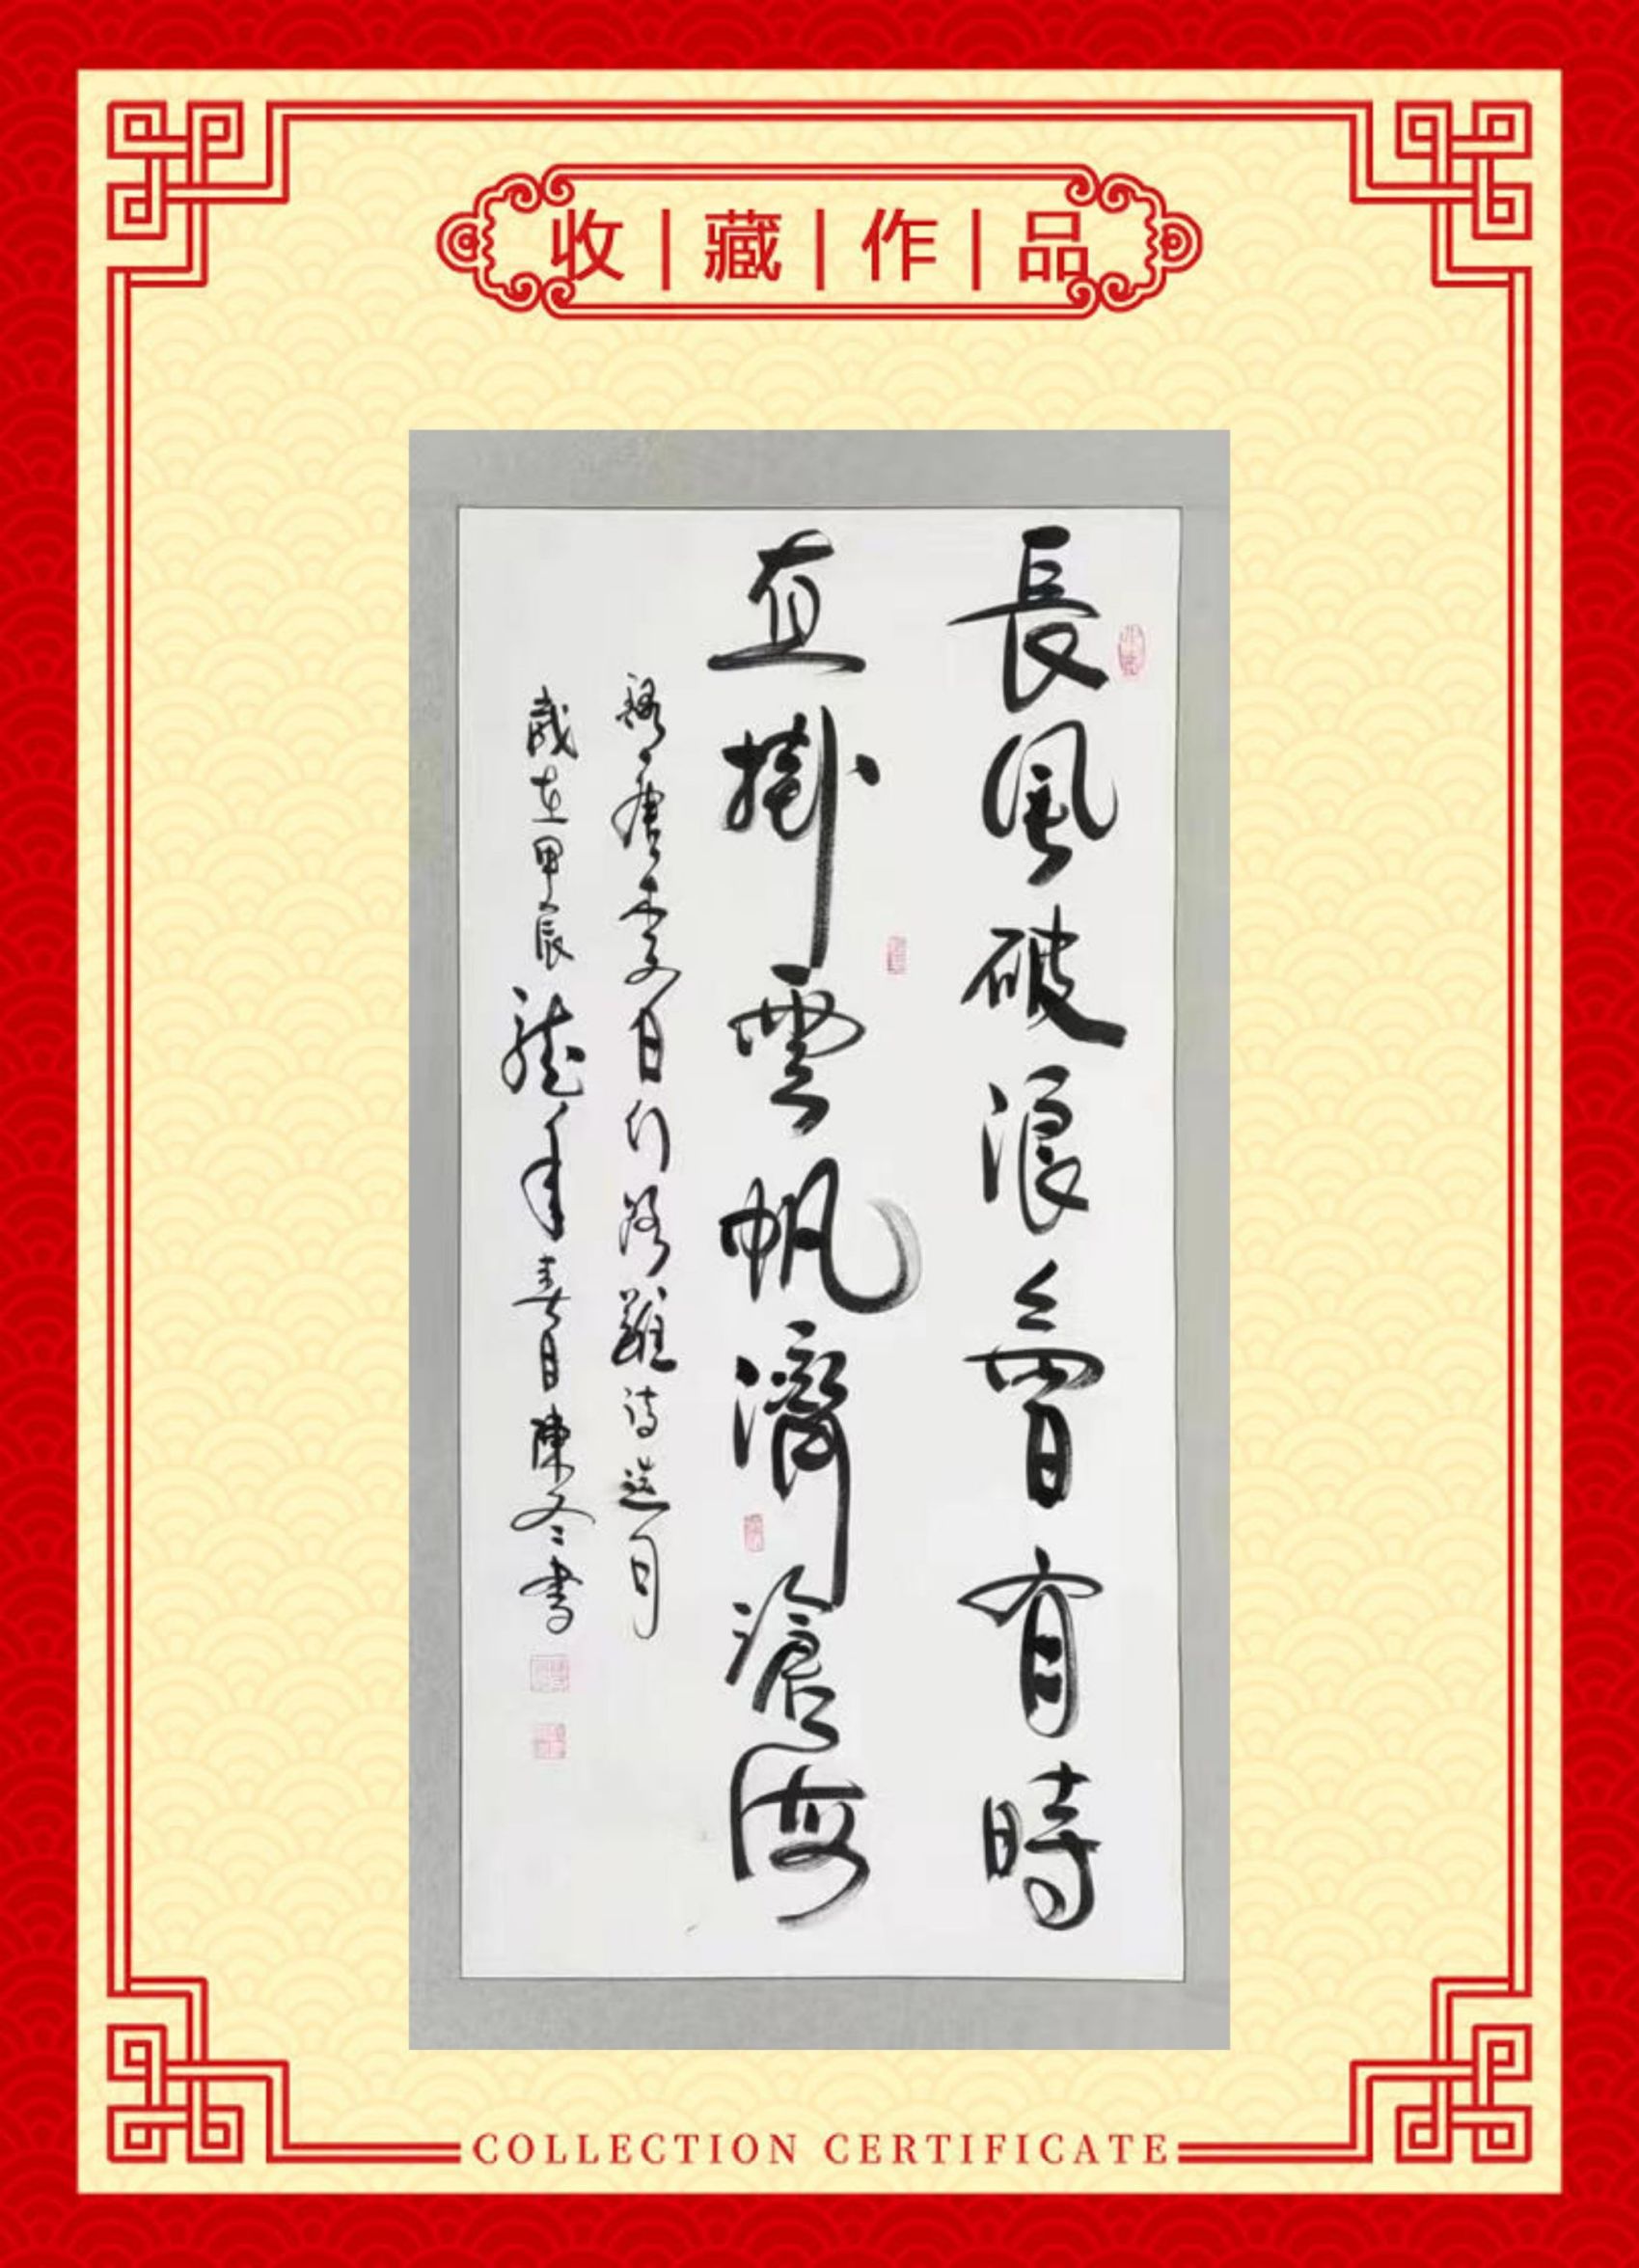 收|藏|作|品
長風破浪會有時
直掛雲帆濟滄海
錄唐李白行路難詩選句
歲在甲辰龍年春陳冬書
COLLECTION CERTIFICATE